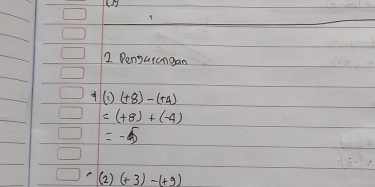 2 Pengurangan
(1) (+8) - (+4)
= (+8) + (-4)
(2) (+3) - (+9)